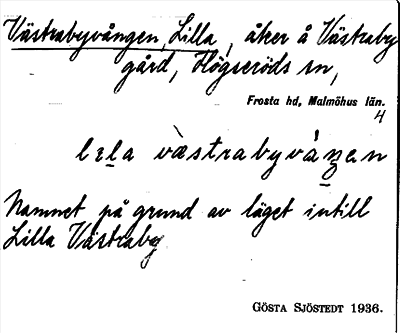 Västrabyvången, Lilla, åker å Västraby
gård, Högseröds sn,
Frosta hd, Malmöhus län.
4
västrabyvåŋen
Namnet på grund av läget intill
Lilla Västraby
GÖSTA SJÖSTEDT 1936.